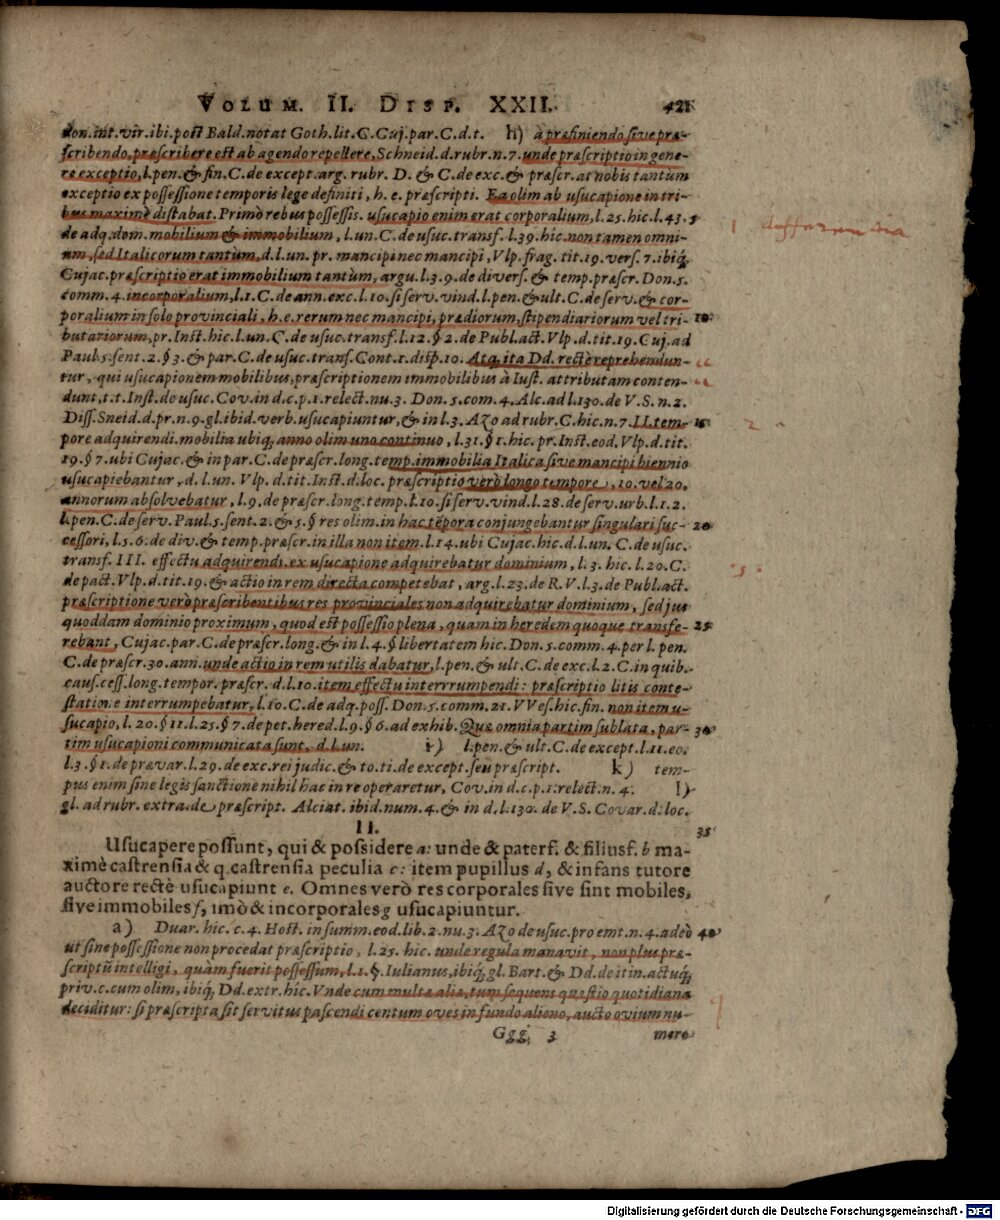 VOLUM. II. DISP. XXII. 421
don.int.vir.ibi.post Bald.notat Goth.lit.C.Cuj.par.C.d.t. h) a præfiniendo sive præ-
scribendo, præscribere est ab agendo repellere, Schneid.d.rubr.n.7. unde præscriptio in gene-
re exceptio, l.pen.& fin.C.de except.arg. rubr. D. & C.de exc.& præscr. at nobis tantum
exceptio ex possessione temporis lege definiti, h.e. præscripti. Ea olim ab usucapione in tri-
bus maximè distabat. Primò rebus possessis. usucapio enim erat corporalium, l.25.hic.l.43. 5
de adq.dom. mobilium & immobilium, l.un.C.de usuc.transf.l.39.hic.non tamen omni-
um, sed Italicorum tantum, d.l.un. pr. mancipi nec mancipi, Vlp.frag. tit.19. vers.7. ibiq́,
Cujac.præscriptio erat immobilium tantùm, argu.l.3.9.de divers.& temp.præscr. Don.5.
comm.4. incorporalium, l.1.C.de ann.exc.l.10. si serv.vind.l.pen.& ult.C.de serv.& cor-
poralium in solo provinciali, h.e. rerum nec mancipi, prædiorum, stipendiariorum vel tri- 10
butariorum, pr.Inst.hic.l.un.C.de usuc.transf.l.12.§ 2.de Publ.act. Vlp.d.tit.19. Cuj.ad
Paul.5.sent.2.§ 3.& par.C.de usuc.transf. Cont.1.disp.10. Atq, ita Dd. rectè reprehendun-
tur, qui usucapionem mobilibus, præscriptionem immobilibus à Iust. attributam conten-
dunt, t.t.Inst.de usuc. Cov.in d.c.p.1.relect.nu.3. Don.5.com.4. Alc.ad l.130.de V.S.n.2.
Diss.Sneid.d.pr.n.9.gl.ibid.verb.usucapiuntur, & in l.3. Azo ad rubr.C.hic.n.7. II. tem- 15
pore adquirendi. mobilia ubiq, anno olim uno continuo, l.31.§ 1.hic.pr.Inst.eod. Vlp.d.tit.
19.§ 7. ubi Cujac.& in par.C.de præscr.long.temp. immobilia Italica sive mancipi biennio
usucapiebantur, d.l.un. Vlp.d.tit.Inst.d.loc. præscriptio verò longo tempore, 10.vel 20.
annorum absolvebatur, l.9.de præscr.long.temp.l.10.si serv.vind.l.28.de serv.urb.l.1.2.
l.pen.C.de serv. Paul.5.sent.2.& 5.§ res olim. in hac tẽpora conjungebantur singulari suc- 20
cessori, l.5.6.de div.& temp.præscr. in illa non item. l.14.ubi Cujac.hic.d.l.un. C.de usuc.
transf. III. effectu adquirendi. ex usucapione adquirebatur dominium, l.3. hic.l.20.C.
de pact. Vlp.d.tit.19.& actio in rem directa competebat, arg.l.23.de R.V.l.3.de Publ.act.
præscriptione verò præscribentibus res provinciales non adquirebatur dominium, sed jus
quoddam dominio proximum, quod est possessio plena, quam in heredem quoque transfe- 25
rebant, Cujac.par.C.de præscr.long.& in l.4.§ libertatem hic. Don.5.comm.4.per l.pen.
C.de præscr.30.ann. unde actio in rem utilis dabatur, l.pen.& ult.C.de exc.l.2.C.in quib.
caus.cess.long.tempor.præscr. d.l.10. item effectu interrrumpendi: præscriptio litis conte-
statione interrumpebatur, l.10.C.de adq.poss. Don.5.comm.21. VVes.hic.fin. non item u-
sucapio, l.20.§ 11.l.25.§ 7.de pet.hered.l.9.§ 6. ad exhib. Quæ omnia partim sublata, par- 30
tim usucapioni communicata sunt, d.l.un. i) l.pen.& ult.C.de except.l.11.eo.
l.3.§ 1.de prævar.l.29.de exc.rei judic.& to.ti.de except.seu præscript. k) tem-
pus enim sine legis sanctione nihil hac in re operaretur, Cov.in d.c.p.1.relect.n.4. l)
gl.ad rubr.extra.de præscript. Alciat.ibid.num.4.& in d.l.130.de V.S. Covar.d.loc.
II. 35
Usucapere possunt, qui & possidere a: unde & paterf. & filiusf. b ma-
ximè castrensia & q.castrensia peculia c: item pupillus d, & infans tutore
auctore rectè usucapiunt e. Omnes verò res corporales sive sint mobiles,
sive immobiles f, imò & incorporales g usucapiuntur.
a) Duar. hic.c.4. Host. in summ.eod.lib.2.nu.3. Azo de usuc.pro emt.n.4. adeò 40
ut sine possessione non procedat præscriptio, l.25. hic. unde regula manavit, non plus præ-
scriptũ intelligi, quàm fuerit possessum, l.1.§. Iulianus, ibiq́, gl. Bart.& Dd.de itin.actuq́,
priv.c.cum olim, ibiq́, Dd.extr.hîc. Vnde cum multæ aliæ, tum sequens quæstio quotidiana
deciditur: si præscripta sit servitus pascendi centum oves in fundo alieno, aucto ovium nu-
Ggg 3 mero
1
2
3
Digitalisierung gefördert durch die Deutsche Forschungsgemeinschaft - DFG